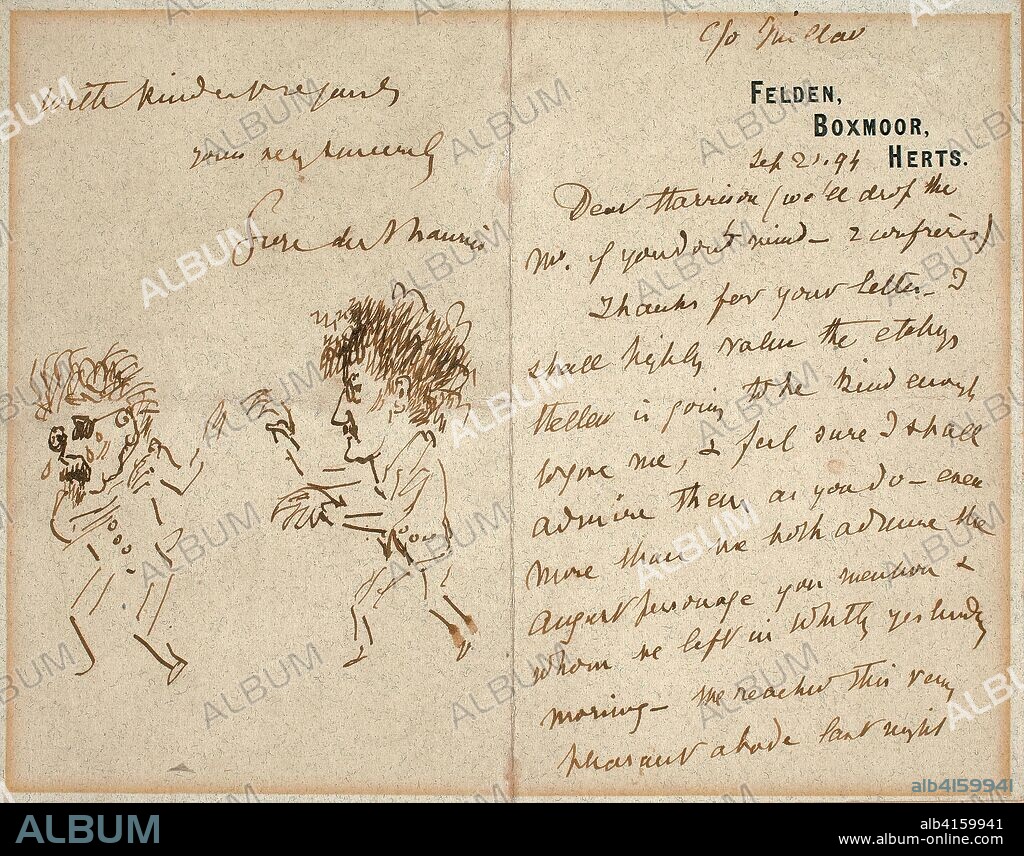 c/o Millar
FELDEN,
BOXMOOR,
HERTS.
Sep 21. 94
Dear Harrison (we'll drop the
Mr. if you don't mind — 2 confrères)
Thanks for your letter — I
shall highly value the etchgs
Helleu is going to be kind enough
to give me, & feel sure I shall
admire them, as you do — even
more than we both admire the
august personage you mention &
whom we left in Whitby yesterday
morning — we reached this very
pleasant abode last night
With kindest regards
yours very sincerely
George du Maurier
ALBUM
alb4159941
ALBUM
alb4159941
www.album-online.com